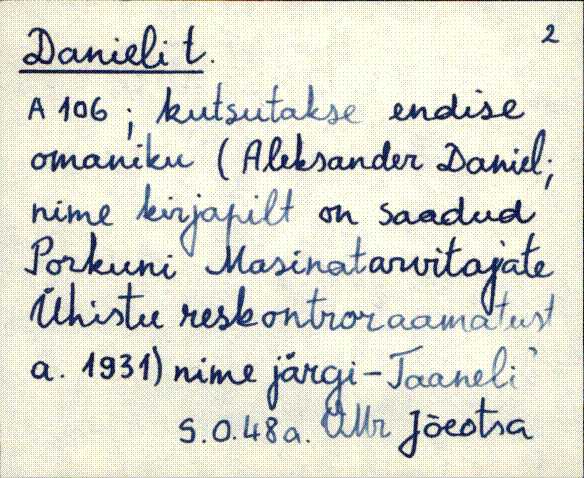 2
Danieli t.
A 106 ; kutsutakse endise
omaniku (Aleksander Daniel;
nime kirjapilt on saadud
Porkuni Masinatarvitajate
Ühistu reskontroraamatust
a. 1931) nime järgi - Taaneli'
S.O. 48 a. Ülvi Jõeotsa